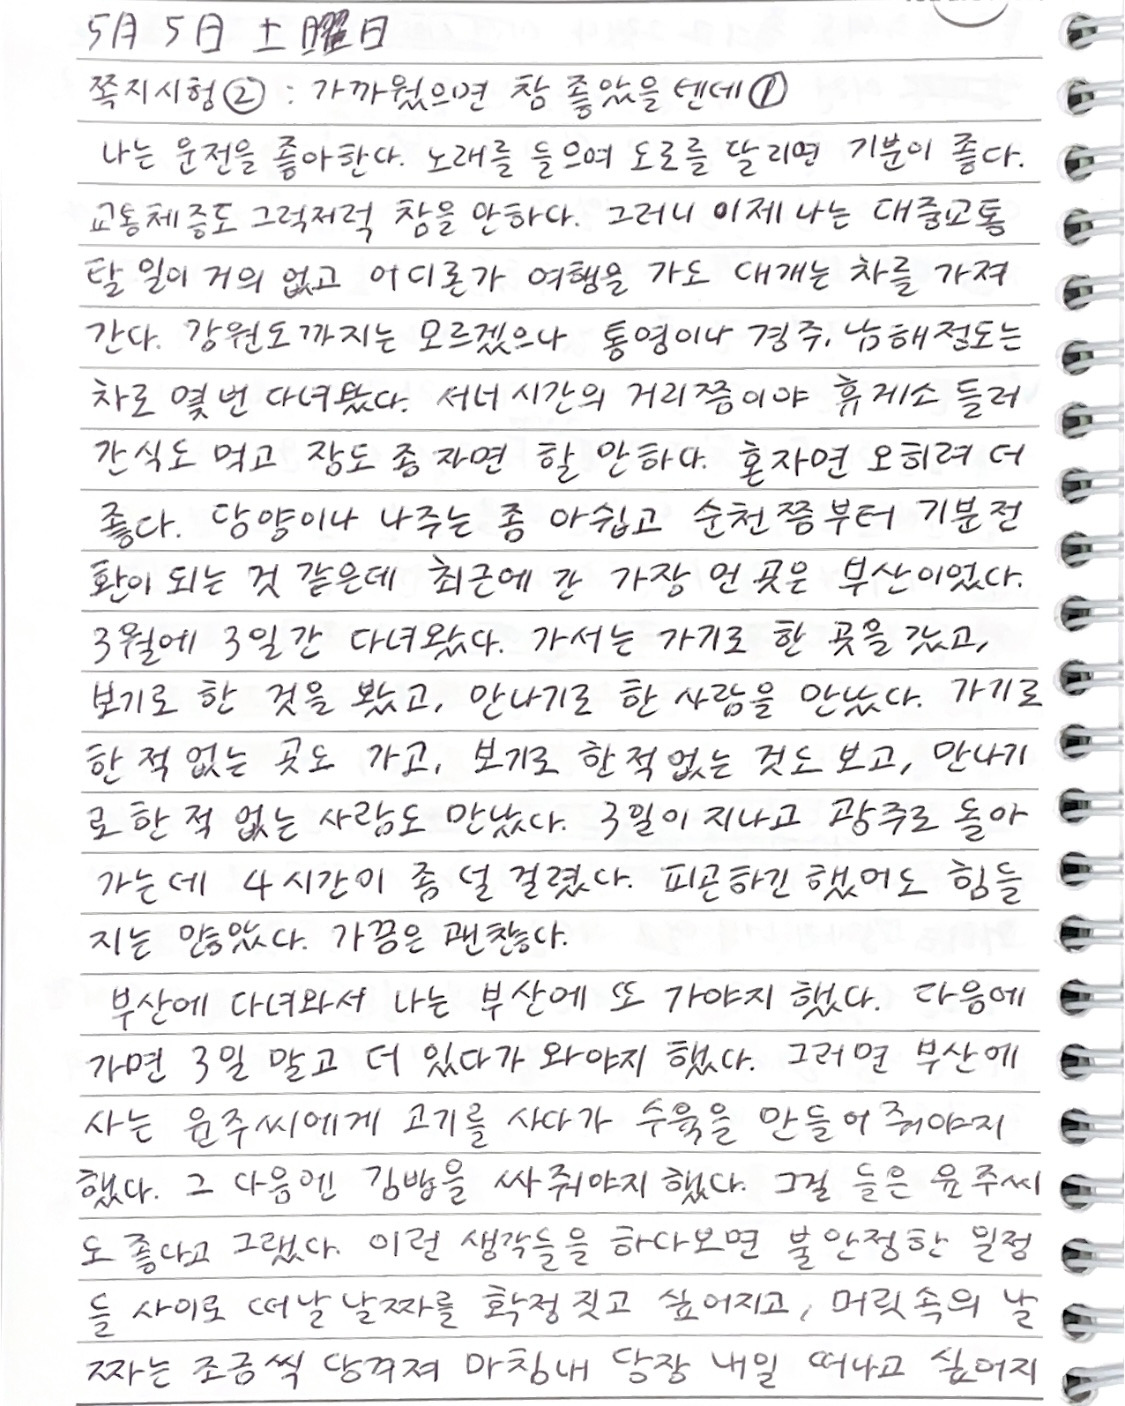 5月 5日 土曜日
쪽지시험② : 가까웠으면 참 좋았을텐데①
나는 운전을 좋아한다. 노래를 들으며 도로를 달리면 기분이 좋다.
교통체증도 그럭저럭 참을 만하다. 그러니 이제 나는 대중교통
탈 일이 거의 없고 어디론가 여행을 가도 대개는 차를 가져
간다. 강원도까지는 모르겠으나 통영이나 경주, 남해정도는
차로 몇 번 다녀봤다. 서너시간의 거리쯤이야 휴게소 들러
간식도 먹고 잠도 좀 자면 할 만하다. 혼자면 오히려 더
좋다. 담양이나 나주는 좀 아쉽고 순천쯤부터 기분전
환이 되는 것 같은데 최근에 간 가장 먼 곳은 부산이었다.
3월에 3일간 다녀왔다. 가서는 가기로 한 곳을 갔고,
보기로 한 것을 봤고, 만나기로 한 사람을 만났다. 가기로
한 적 없는 곳도 가고, 보기로 한 적 없는 것도 보고, 만나기
로 한 적 없는 사람도 만났다. 3일이 지나고 광주로 돌아
가는데 4시간이 좀 덜 걸렸다. 피곤하긴 했어도 힘들
지는 않았다. 가끔은 괜찮다.
부산에 다녀와서 나는 부산에 또 가야지 했다. 다음에
가면 3일 말고 더 있다가 와야지 했다. 그러면 부산에
사는 윤주씨에게 고기를 사다가 수육을 만들어 줘야지
했다. 그 다음엔 김밥을 싸줘야지 했다. 그걸 들은 윤주씨
도 좋다고 그랬다. 이런 생각들을 하다보면 불안정한 일정
들 사이로 떠날 날짜를 확정 짓고 싶어지고, 머릿속의 날
짜는 조금씩 당겨져 마침내 당장 내일 떠나고 싶어지